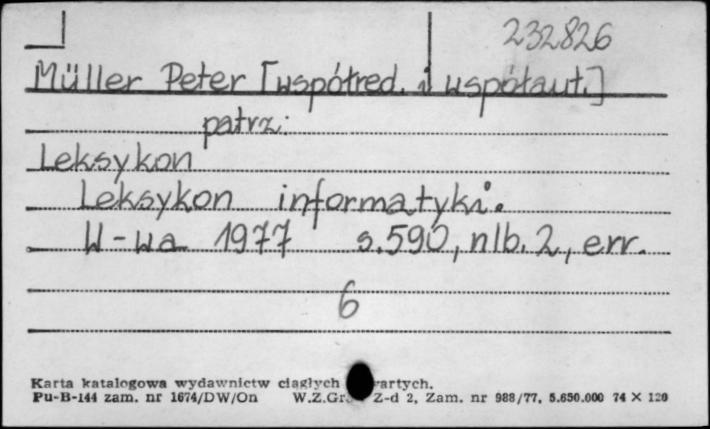 232826
Müller Peter [współred. i współaut.]
patrz:
Leksykon
Leksykon informatyki.
W-wa 1977 s.590, nlb. 2, err.
6
Karta katalogowa wydawnictw ciągłych wartych.
Pu-B-144 zam. nr 1674/DW/On W.Z.Gr. Z-d 2, Zam. nr 988/77, 5.650.000 74 X 120